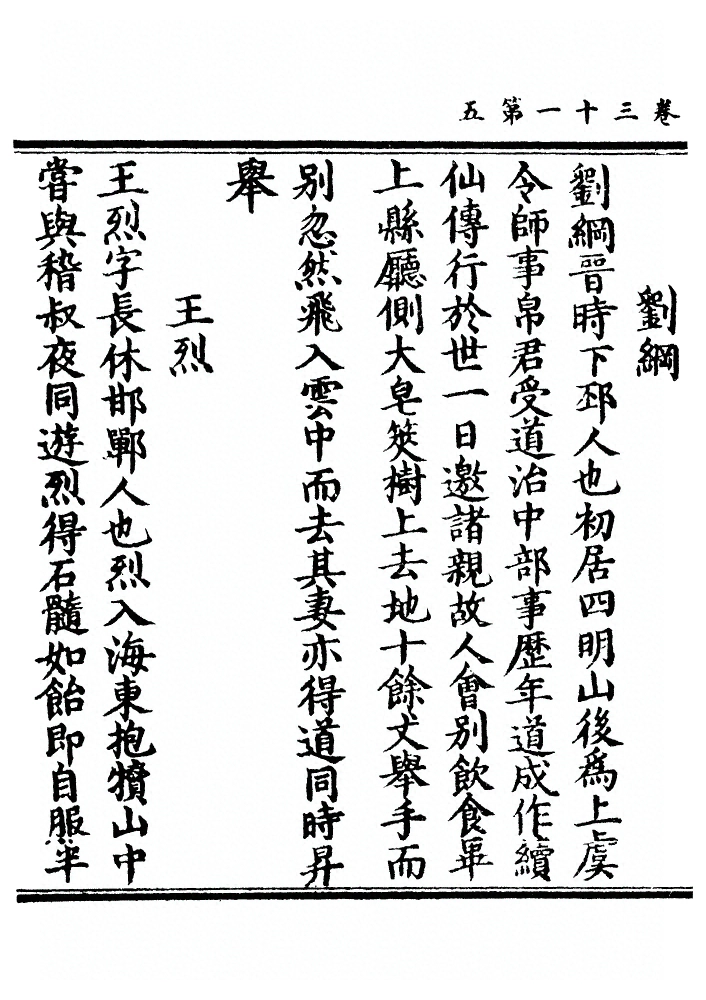 卷三十一第五
劉綱
劉綱晉時下邳人也初居四明山後爲上虞
令師事帛君受道治中部事歷年道成作續
仙傳行於世一日邀諸親故人會別飲食畢
上縣廳側大皂筴樹上去地十餘丈舉手而
別忽然飛入雲中而去其妻亦得道同時昇
舉
王烈
王烈字長休邯鄲人也烈入海東抱犢山中
嘗與嵇叔夜同遊烈得石髓如飴即自服半